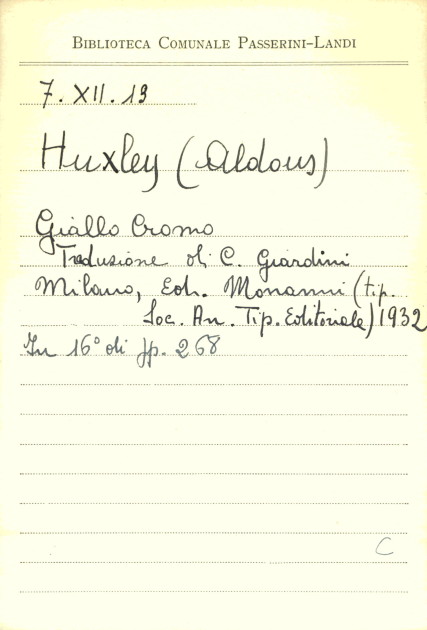 BIBLIOTECA COMUNALE PASSERINI-LANDI
7. XII. 13
Huxley (Aldous)
Giallo Cromo
Traduzione di C. Giardini
Milano, Ed. Monanni (tip.
Soc. An. Tip. Editoriale) 1932
In 16° di pp. 268
C